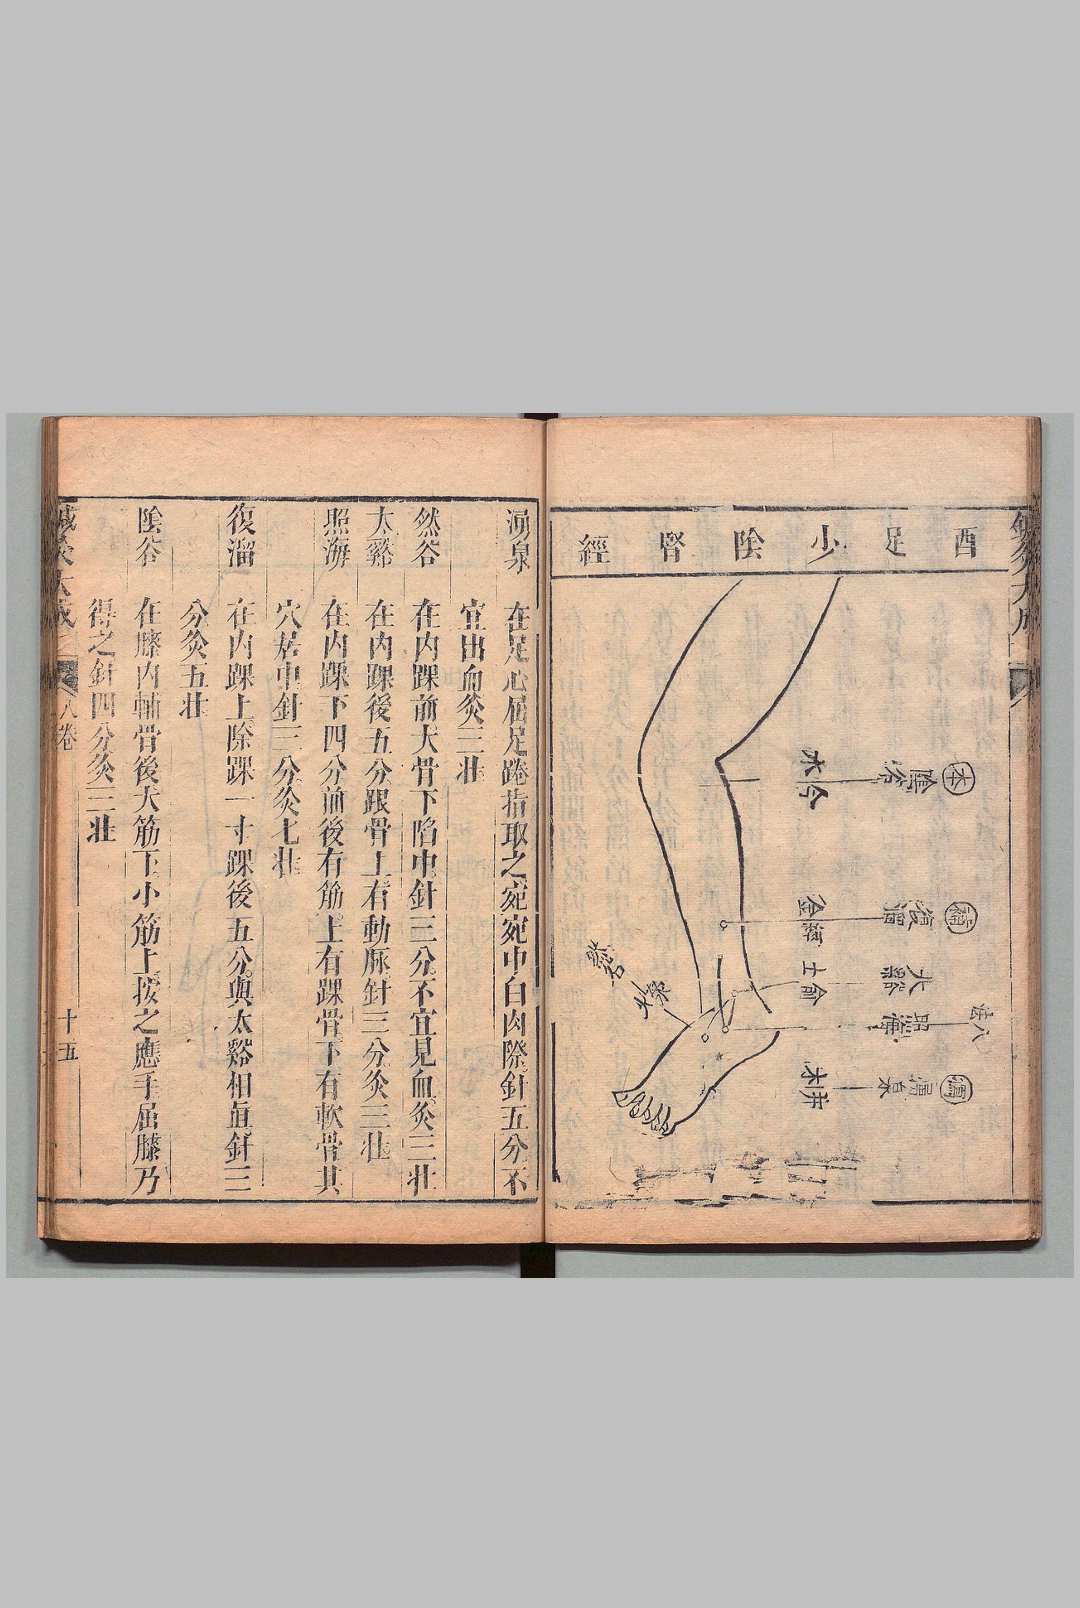 鍼灸大成
酉足少陰腎經
本
陰谷
水合
補
復溜
金經
太谿
土俞
八法
照海
瀉
湧泉
木井
然谷
火滎
湧泉 在足心屈足踡指取之宛宛中白肉際針五分不
宜出血灸三壯
然谷 在内踝前大骨下陷中針三分不宜見血灸三壯
太谿 在内踝後五分跟骨上有動脉針三分灸三壯
照海 在内踝下四分前後有筋上有踝骨下有軟骨其
穴居中針三分灸七壯
復溜 在内踝上除踝一寸踝後五分與太谿相直針三
分灸五壯
陰谷 在膝内輔骨後大筋下小筋上按之應手屈膝乃
得之針四分灸三壯
鍼灸大成 八卷 十五